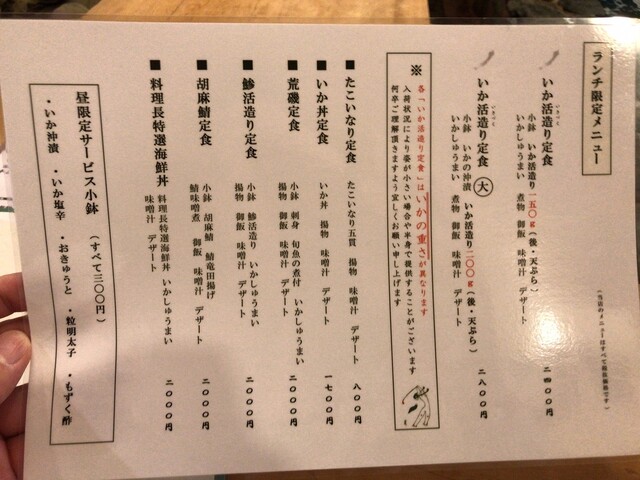 ランチ限定メニュー
(当店のメニューはすべて税抜価格です)
いか活造り定食
小鉢 いか活造り一五〇g(後・天ぷら)
いかしゅうまい 煮物 御飯 味噌汁 デザート
二四〇〇円
いか活造り定食 大
小鉢 いかの沖漬 いか活造り二〇〇g(後・天ぷら)
いかしゅうまい 煮物 御飯 味噌汁 デザート
二八〇〇円
※
各「いか活造り定食」はいかの重さが異なります
入荷状況により姿が小さい場合や半身で提供することがございます
何卒ご理解頂きますよう宜しくお願い申し上げます
■ たこいなり定食
たこいなり五貫 揚物 味噌汁 デザート
八〇〇円
■ いか丼定食
いか丼 揚物 味噌汁 デザート
一七〇〇円
■ 荒磯定食
小鉢 刺身 旬魚の煮付 いかしゅうまい
揚物 御飯 味噌汁 デザート
二〇〇〇円
■ 鯵活造り定食
小鉢 鯵活造り いかしゅうまい
揚物 御飯 味噌汁 デザート
二〇〇〇円
■ 胡麻鯖定食
小鉢 胡麻鯖 鯖竜田揚げ
鯖味噌煮 御飯 味噌汁 デザート
二〇〇〇円
■ 料理長特選海鮮丼
料理長特選海鮮丼 いかしゅうまい
味噌汁 デザート
二〇〇〇円
昼限定サービス小鉢 (すべて三〇〇円)
・いか沖漬 ・いか塩辛 ・おきゅうと ・粒明太子 ・もずく酢